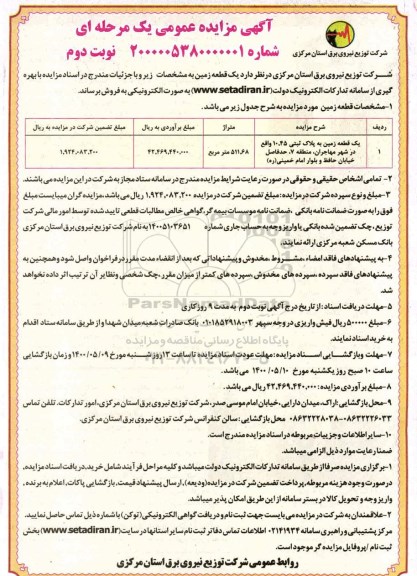 آگهی مزایده عمومی یک مرحله ای
شماره ۲۰۰۰۰۰۵۳۸۰۰۰۰۰۰۱ نوبت دوم
شرکت توزیع نیروی برق استان مرکزی
شرکت توزیع نیروی برق استان مرکزی در نظر دارد یک قطعه زمین به مشخصات زیر و با جزئیات مندرج در اسناد مزایده با بهره
گیری از سامانه تدارکات الکترونیک دولت (www.setadiran.ir) به صورت الکترونیکی به فروش برساند.
۱- مشخصات قطعه زمین مورد مزایده به شرح جدول زیر می باشد.
ردیف شرح مزایده متراژ مبلغ برآوردی به ریال مبلغ تضمین شرکت در مزایده به ریال
۱ یک قطعه زمین به پلاک ثبتی ۱۰،۴۵ واقع در شهر مهاجران، منطقه ۷، حدفاصل خیابان حافظ و بلوار امام خمینی (ره) ۵۱۱،۶۸ متر مربع ۴۲،۴۶۹،۴۴۰،۰۰۰ ۱،۹۲۴،۰۸۳،۲۰۰
۲- تمامی اشخاص حقیقی و حقوقی در صورت رعایت شرایط مزایده مندرج در سامانه ستاد مجاز به شرکت در این مزایده می باشند.
۳- مبلغ و نوع سپرده شرکت در مزایده: مبلغ تضمین شرکت در مزایده ۱،۹۲۴،۰۸۳،۲۰۰ ریال می باشد، مزایده گران میبایست مبلغ
فوق را به صورت ضمانت نامه بانکی، ضمانت نامه موسسات بیمه گر، گواهی خالص مطالبات قطعی تایید شده توسط امور مالی شرکت
توزیع، چک تضمین شده بانکی یا واریز وجه به حساب جاری شماره ۱۴۰۰۵۱۰۳۶۵۱ به نام شرکت توزیع نیروی برق استان مرکزی
بانک مسکن شعبه مرکزی ارائه نمایند.
۴- به پیشنهادهای فاقد امضاء، مشروط، مخدوش و پیشنهاداتی که بعد از انقضاء مدت مقرر در فراخوان واصل شود و همچنین به
پیشنهادهای فاقد سپرده، سپرده های مخدوش، سپرده های کمتر از میزان مقرر، چک شخصی و نظایر آن ترتیب اثر داده نخواهد
شد.
۵- مهلت دریافت اسناد: از تاریخ درج آگهی نوبت دوم به مدت ۹ روز کاری
۶- مبلغ ۵۰۰۰۰۰ ریال فیش واریزی در وجه سپهر ۰۱۰۱۸۵۲۹۱۸۰۰۳ بانک صادرات شعبه میدان شهدا و از طریق سامانه ستاد اقدام
به خرید اسناد نمایند.
۷- مهلت و بازگشایی اسناد مزایده: مهلت عودت اسناد مزایده تا ساعت ۱۳ روز شنبه مورخ ۱۴۰۰/۰۵/۰۹ و زمان بازگشایی
ساعت ۱۰ صبح روز یکشنبه مورخ ۱۴۰۰/۰۵/۱۰ می باشد.
۸- مبلغ برآوردی مزایده: ۴۲،۴۶۹،۴۴۰،۰۰۰ ریال می باشد.
۹- محل بازگشایی: اراک، میدان دارایی، خیابان امام موسی صدر، شرکت توزیع نیروی برق استان مرکزی، امور تدارکات. تلفن تماس
۰۸۶۳۲۲۲۶۰۳۳-۰۸۶۳۲۲۲۸۰۳۸ محل بازگشایی: سالن کنفرانس شرکت توزیع نیروی برق استان مرکزی.
۱۰- سایر اطلاعات و جزییات مربوطه در اسناد مزایده مندرج است.
ضمنا رعایت موارد ذیل الزامی میباشد.
۱- برگزاری مزایده صرفا از طریق سامانه تدارکات الکترونیک دولت میباشد و کلیه مراحل فرآیند شامل خرید، دریافت اسناد مزایده،
در صورت وجود هزینه مربوطه، پرداخت تضمین شرکت در مزایده (ودیعه)، ارسال پیشنهاد قیمت، بازگشایی پاکات، اعلام به برنده،
واریز وجه و تحویل کالا در بستر سامانه از این طریق امکان پذیر میباشد.
۲- علاقمندان به شرکت در مزایده می بایست جهت ثبت نام و دریافت گواهی الکترونیکی (توکن) با شماره ذیل تماس حاصل نمایید.
مرکز پشتیبانی و راهبری سامانه ۰۲۱۴۱۹۳۴ اطلاعات تماس دفاتر ثبت نام سایر استانها در سایت (www.setadiran.ir) بخش
ثبت نام / پروفایل مزایده گر موجود است.
روابط عمومی شرکت توزیع نیروی برق استان مرکزی